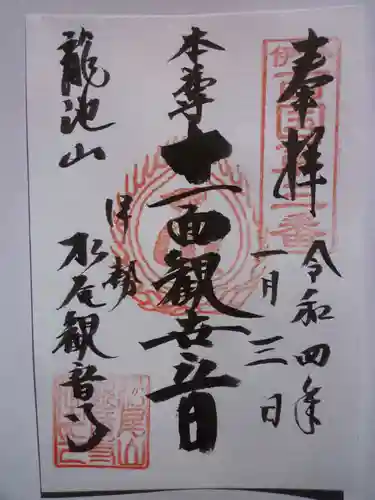 奉拝
令和四年
一月三日
本尊
十一面観世音
龍池山
伊勢
水屋観音寺